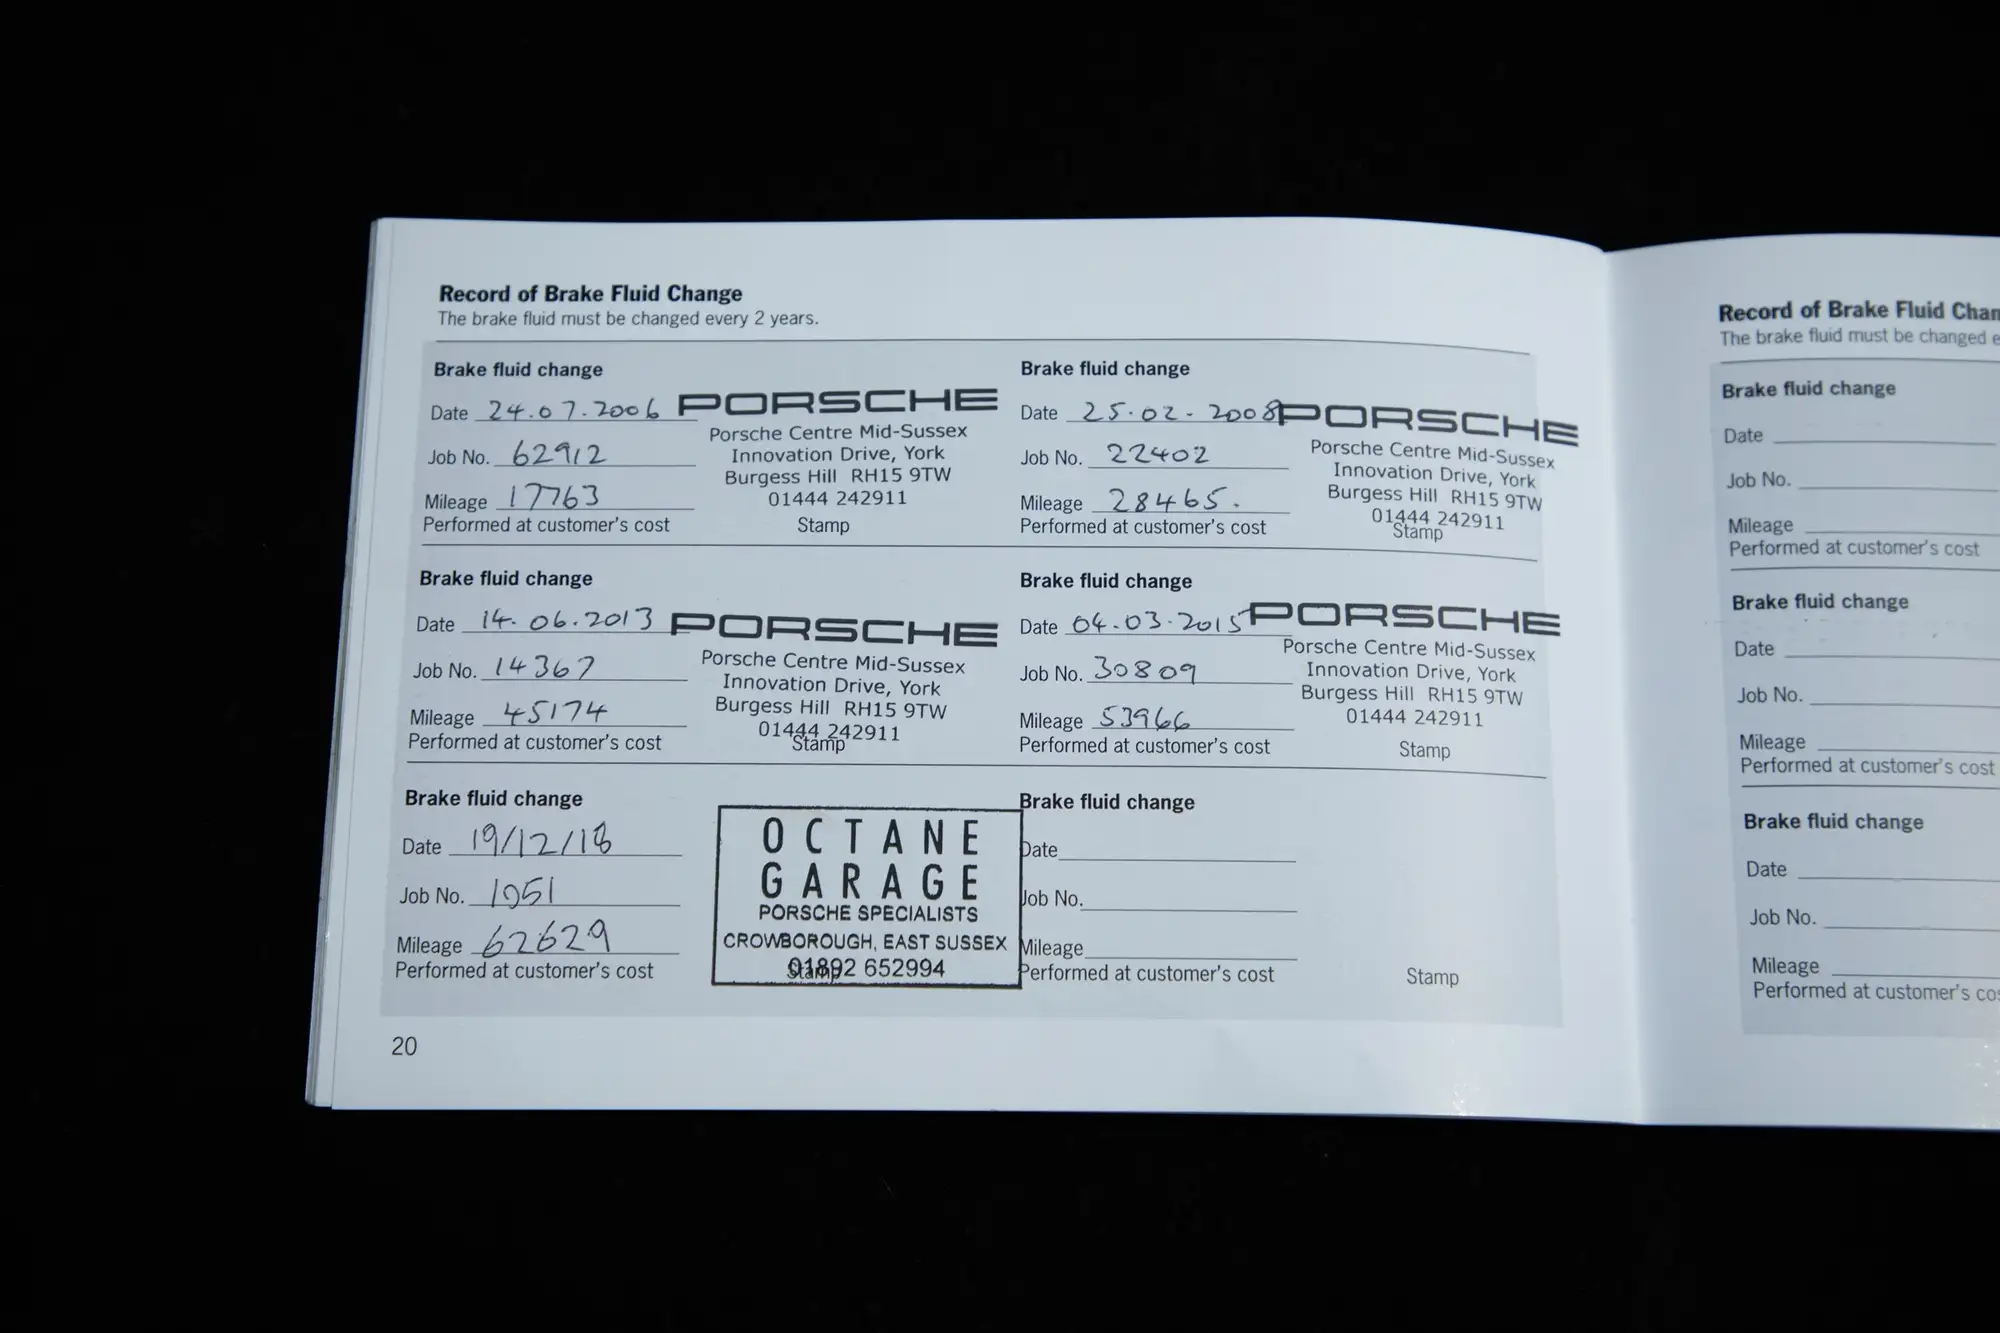 Record of Brake Fluid Change
The brake fluid must be changed every 2 years.
Brake fluid change
Date 24.07.2006
Job No. 62912
Mileage 17763
Performed at customer's cost
PORSCHE
Porsche Centre Mid-Sussex
Innovation Drive, York
Burgess Hill RH15 9TW
01444 242911
Stamp
Brake fluid change
Date 25.02.2008
Job No. 22402
Mileage 28465.
Performed at customer's cost
PORSCHE
Porsche Centre Mid-Sussex
Innovation Drive, York
Burgess Hill RH15 9TW
01444 242911
Stamp
Brake fluid change
Date 14.06.2013
Job No. 14367
Mileage 45174
Performed at customer's cost
PORSCHE
Porsche Centre Mid-Sussex
Innovation Drive, York
Burgess Hill RH15 9TW
01444 242911
Stamp
Brake fluid change
Date 04.03.2015
Job No. 30809
Mileage 53966
Performed at customer's cost
PORSCHE
Porsche Centre Mid-Sussex
Innovation Drive, York
Burgess Hill RH15 9TW
01444 242911
Stamp
Brake fluid change
Date 19/12/18
Job No. 1951
Mileage 62629
Performed at customer's cost
OCTANE
GARAGE
PORSCHE SPECIALISTS
CROWBOROUGH, EAST SUSSEX
01892 652994
Stamp
Brake fluid change
Date
Job No.
Mileage
Performed at customer's cost
Stamp
20
Record of Brake Fluid Chan
The brake fluid must be changed e
Brake fluid change
Date
Job No.
Mileage
Performed at customer's cost
Brake fluid change
Date
Job No.
Mileage
Performed at customer's cost
Brake fluid change
Date
Job No.
Mileage
Performed at customer's cos